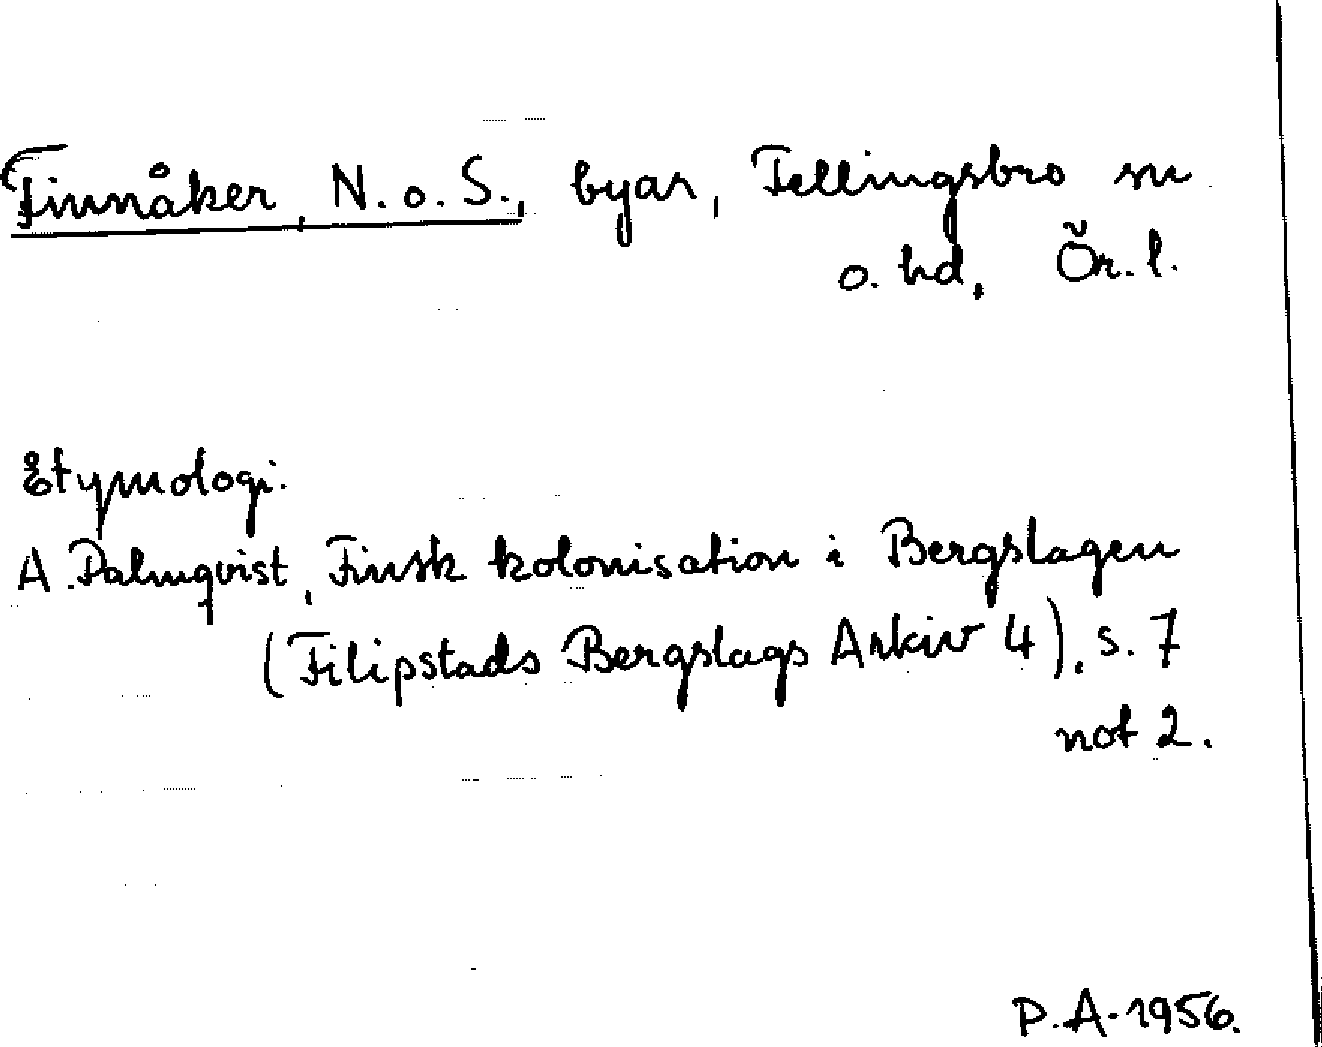 Finnåker, N. o. S., byar, Fellingsbro sn
o. hd, Ör. l.
Etymologi.
A. Palmqvist, Finsk kolonisation i Bergslagen
(Filipstads Bergslags Arkiv 4), s. 7
not 2.
P. A. 1956.